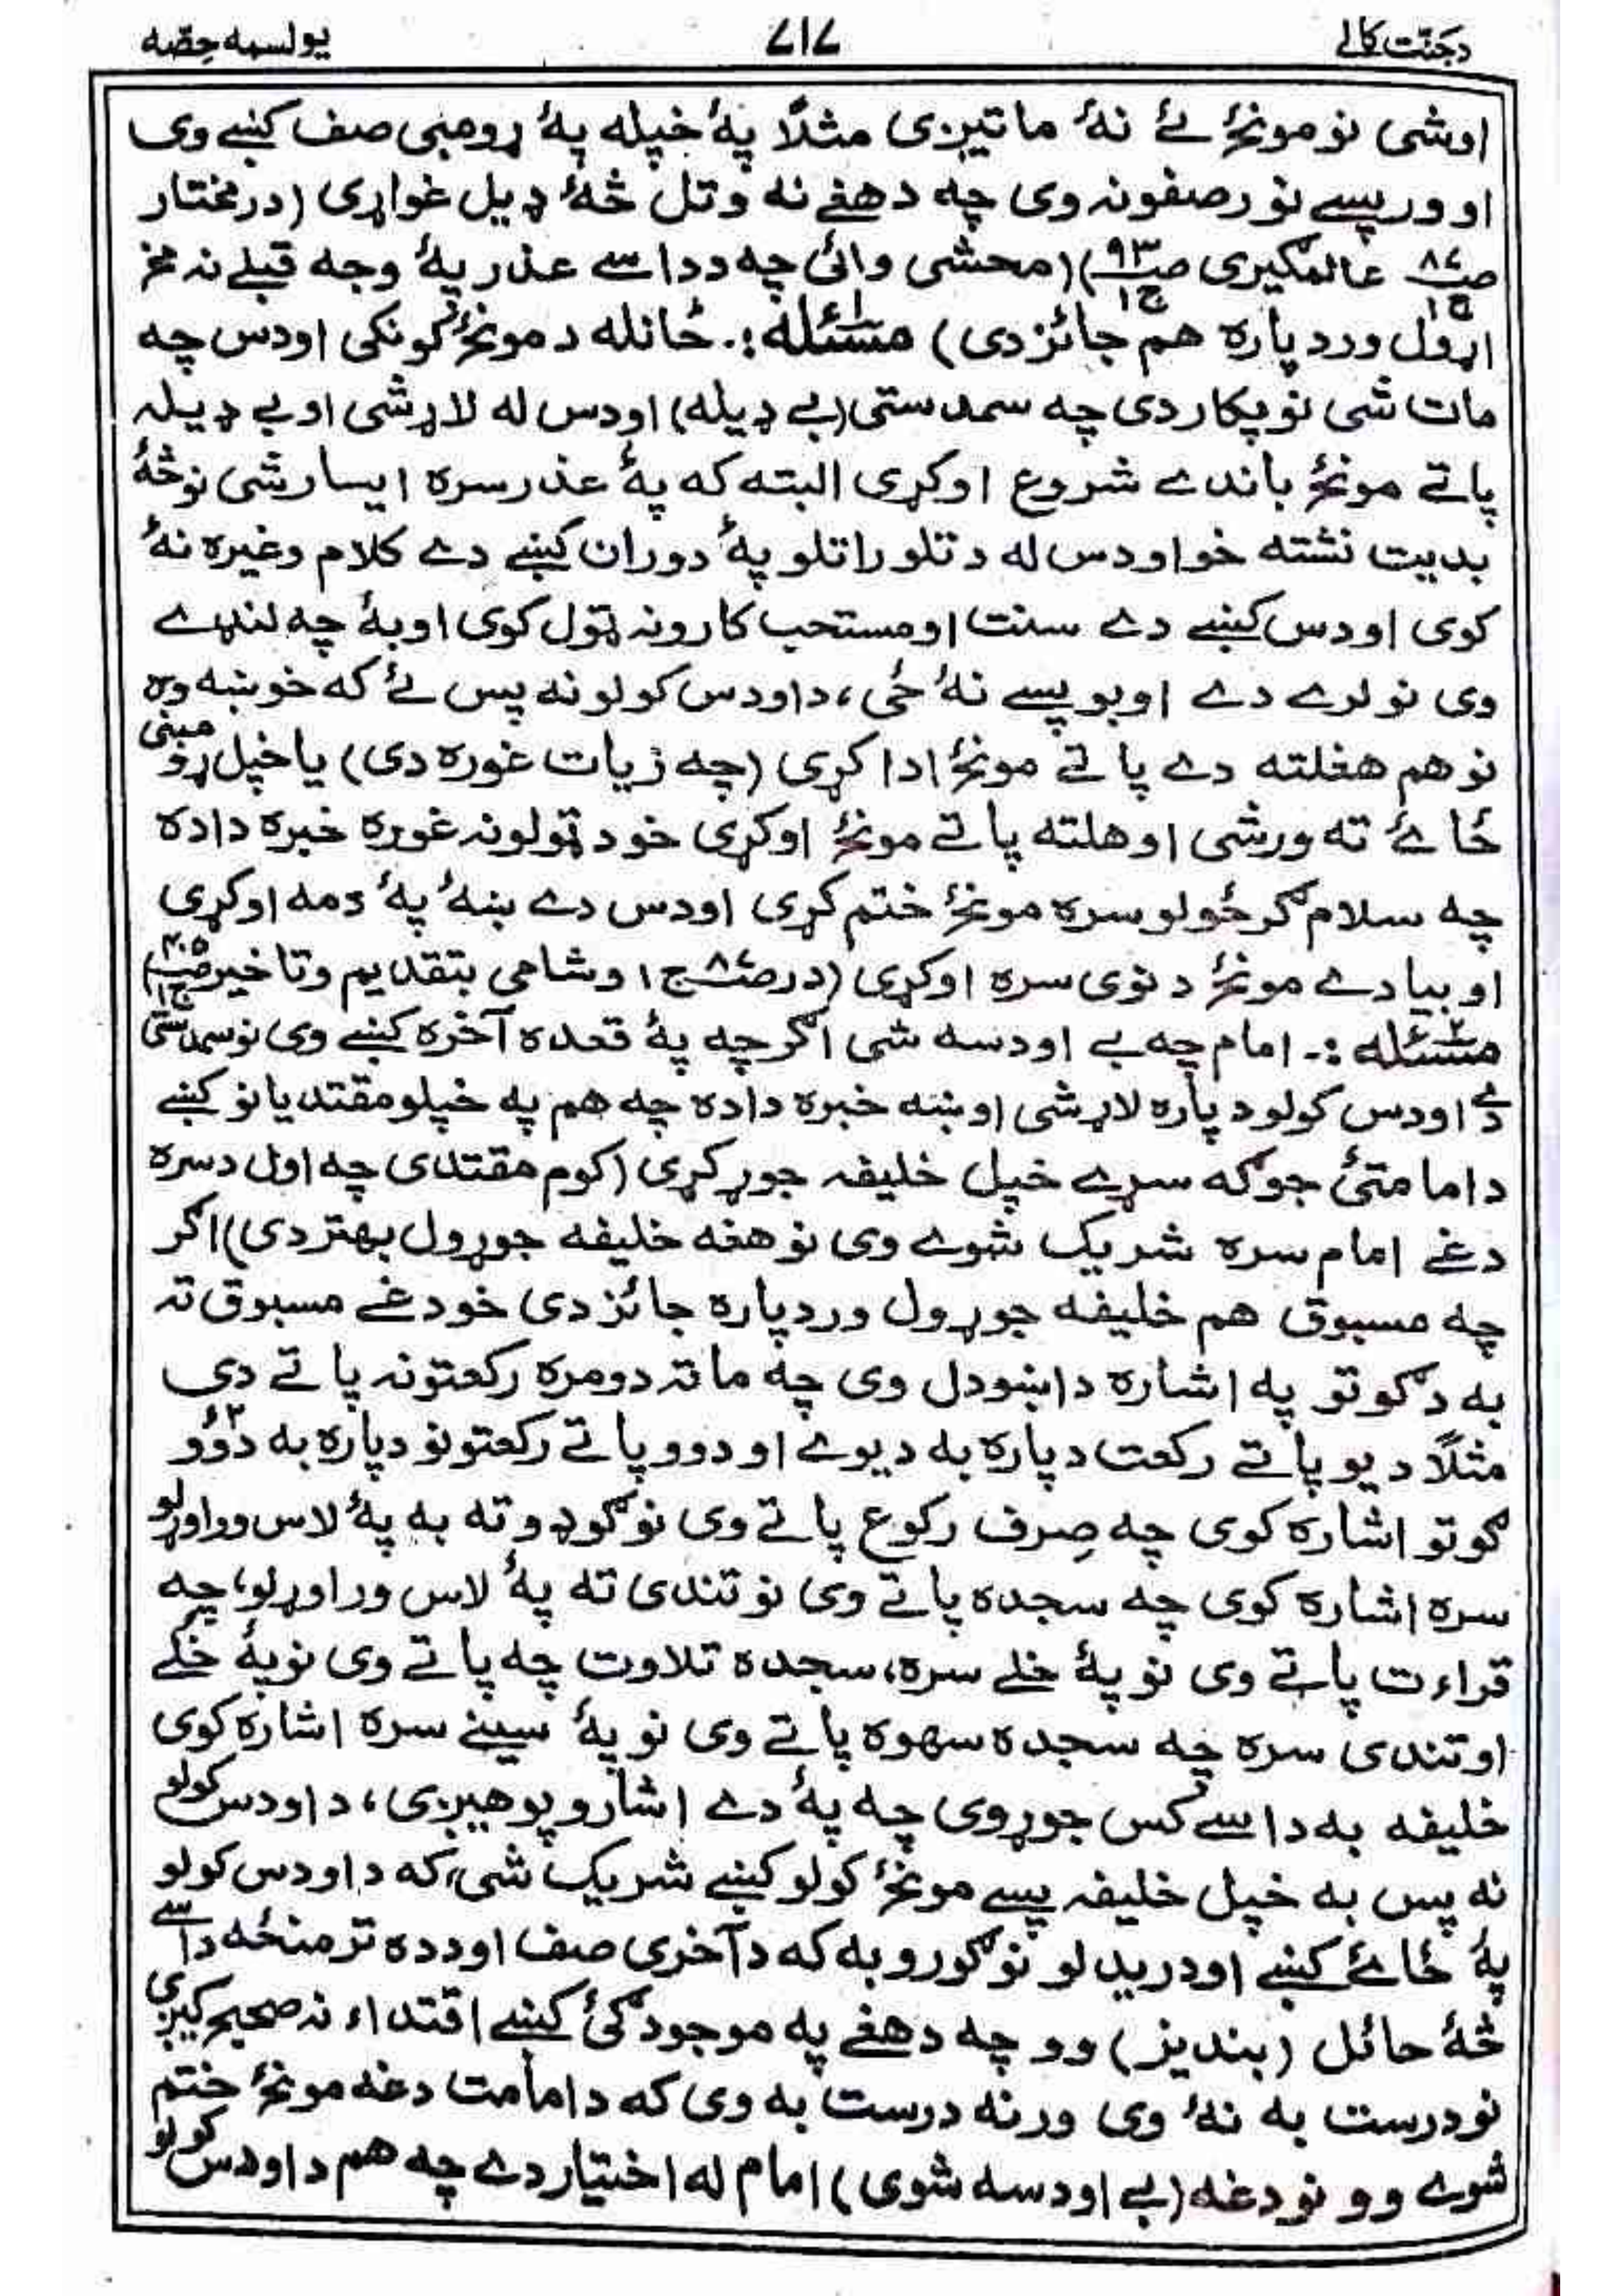 دجنّت کالے ۷۱۷ یولسمه حِصّه
اوشی نو مونځۀ ئے نۀ ماتیږی مثلًا پۀ خپله پۀ ړومبی صف کښے وی
او ورپسے نور صفونه وی چه د هغے نه وتل څۀ ډیل غواړی (درمختار
صـ۸۷ ج۱ عالمګیری صـ۹۳ ج۱) (محشی وائی چه د داسے عذر پۀ وجه قبلے نه مخ
اړول ورد پاره هم جائز دی) مسئله۱:- ځانله د مونځۀ کونکی اودس چه
مات شی نو پکار دی چه سمدستی (بے ډیله) اودس له لاړشی او بے ډیله
پاتے مونځۀ باندے شروع اوکړی البته که پۀ عذر سره ایسار شی نو څۀ
بدیت نشته خو اودس له د تلو راتلو پۀ دوران کښے دے کلام وغیره نۀ
کوی اودس کښے دے سنت او مستحب کارونه ټول کوی اوبۀ چه لنډے
وی نو لرے دے اوبو پسے نۀ ځی، د اودس کولو نه پس ئے که خوښه وه
نو هم هغلته دے پاتے مونځۀ ادا کړی (چه زیات غوره دی) یا خپل ړومبنی
ځائے ته ورشی او هلته پاتے مونځۀ اوکړی خو د ټولو نه غوره خبره دا ده
چه سلام ګرځولو سره مونځۀ ختم کړی اودس دے ښۀ پۀ دمه اوکړی
او بیا دے مونځۀ د نوی سره اوکړی (در صـ۸۷ ج۱ وشامی بتقدیم وتاخیر صـ۴۰۵ ج۱)
مسئله۲:- امام چه بے اودسه شی اګرچه پۀ قعده آخره کښے وی نو سمدستی
دے اودس کولو د پاره لاړشی او ښه خبره دا ده چه هم په خپلو مقتدیانو کښے
د امامتئ جوګه سړے خپل خلیفه جوړ کړی (کوم مقتدی چه اول د سره
دغے امام سره شریک شوے وی نو هغه خلیفه جوړول بهتر دی) اګر
چه مسبوق هم خلیفه جوړول ورد پاره جائز دی خو دغے مسبوق ته
به د ګوتو په اشاره دا ښودل وی چه ما ته دومره رکعتونه پاتے دی
مثلًا د یو پاتے رکعت د پاره به د یوے او دوو پاتے رکعتونو د پاره به د دوؤ
ګوتو اشاره کوی چه صِرف رکوع پاتے وی نو ګوډو ته به پۀ لاس وراوړلو
سره اشاره کوی چه سجده پاتے وی نو تندی ته پۀ لاس وراوړلو، چه
قراءت پاتے وی نو پۀ خلے سره، سجده تلاوت چه پاتے وی نو پۀ خلے
او تندی سره چه سجده سهوه پاتے وی نو پۀ سینے سره اشاره کوی
خلیفه به داسے کس جوړوی چه پۀ دے اشارو پوهیږی، د اودس کولو
نه پس به خپل خلیفه پسے مونځۀ کولو کښے شریک شی، که د اودس کولو
پۀ ځائے کښے اودریدلو نو ګورو به که د آخری صف او دده تر منځه داسے
څۀ حائل (بندیز) وو چه د هغے په موجودګئ کښے اقتداء نه صحیح کیږی
نو درست به نۀ وی ورنه درست به وی که د امامت دغه مونځۀ ختم
شوے وو نو دغه (بے اودسه شوی) امام له اختیار دے چه هم د اودس کولو